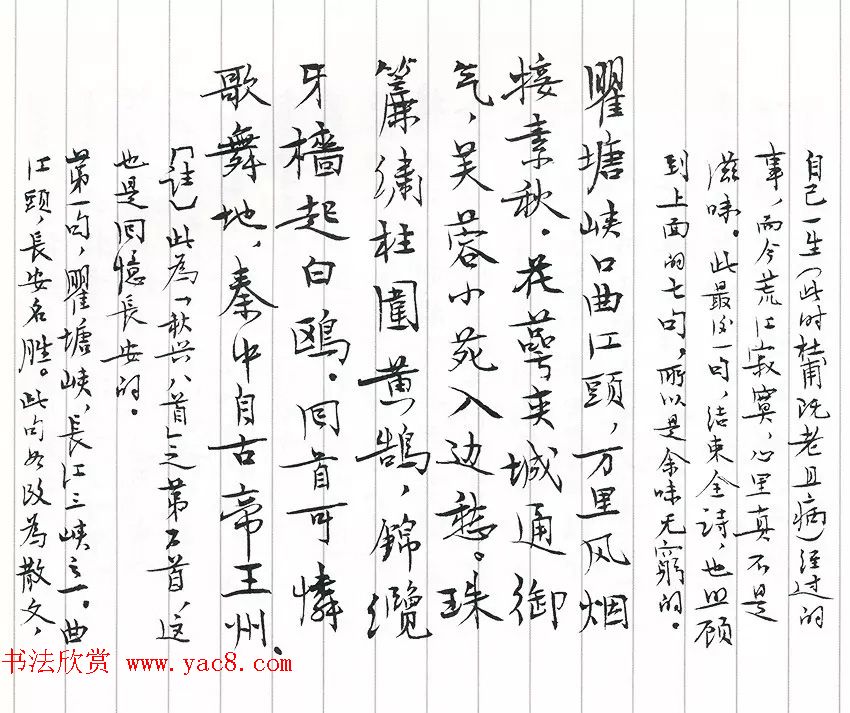 自己一生(此时杜甫既老且病)经过的
事，而今荒江寂寞，心里真不是
滋味。此最后一句，结束全诗，也照顾
到上面的七句，所以是余味无穷的。
瞿塘峡口曲江頭，万里风烟
接素秋。花萼夹城通御
气，芙蓉小苑入边愁。珠
簾绣柱圍黄鵠，錦纜
牙檣起白鷗。回首可憐
歌舞地，秦中自古帝王州。
「註」此為「秋兴八首」之第六首，这
也是回憶長安的。
第一句，瞿塘峡，長江三峡之一。曲
江頭，長安名胜。此句如改為散文，
书法欣赏 www.yac8.com